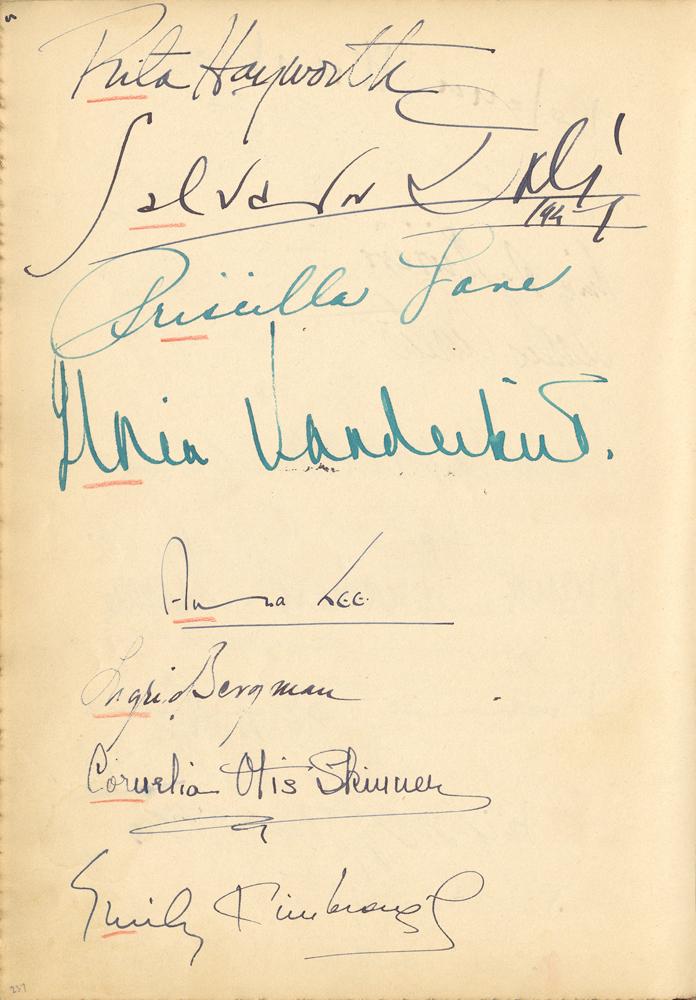 Rita Hayworth
Salvador Dalí
1947
Priscilla Lane
Gloria Vanderbilt.
Anna Lee
Ingrid Bergman
Cornelia Otis Skinner
Emily Kimbrough
237